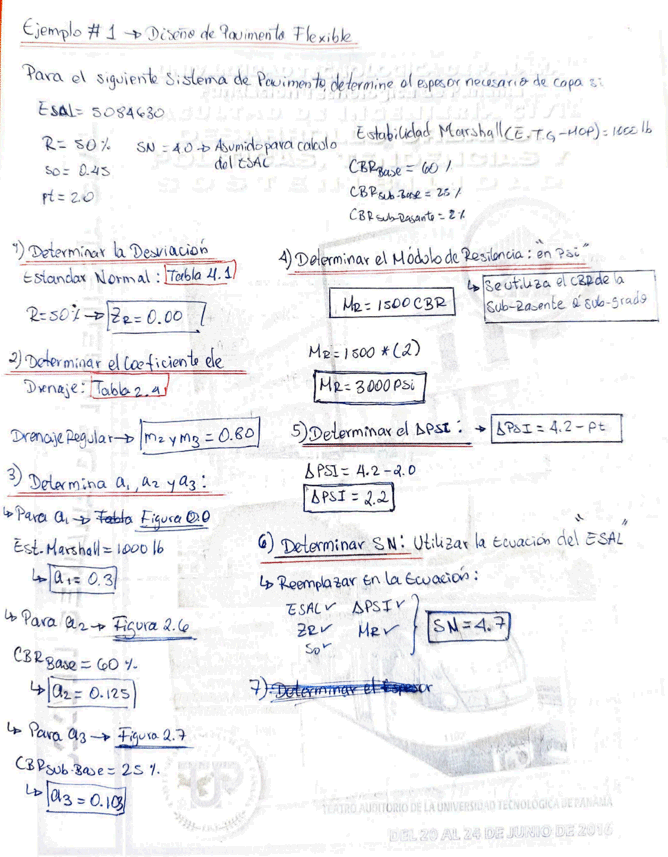 Ejemplo # 1 → Diseño de Pavimento Flexible
Para el siguiente Sistema de Pavimento, determine el espesor necesario de capa si:
Esal = 5084630
R = 50% SN = 4.0 → Asumido para calculo del ESAL
So = 0.45
pt = 2.0
Estabilidad Marshall (E.T.G-MOP) = 1000 lb
CBR Base = 60 %
CBR Sub-Base = 25 %
CBR Sub-Rasante = 2%
1) Determinar la Desviación
Estandar Normal: Tabla 4.1
R = 50% → ZR = 0.00
2) Determinar el Coeficiente de
Drenaje: Tabla 2.4
Drenaje Regular → m2 y m3 = 0.80
3) Determina a1, a2 y a3:
↳ Para a1 → Tabla Figura 0.0
Est. Marshall = 1000 lb
↳ a1 = 0.3
↳ Para a2 → Figura 2.6
CBR Base = 60 %
↳ a2 = 0.125
↳ Para a3 → Figura 2.7
CBR Sub-Base = 25 %
↳ a3 = 0.103
4) Determinar el Módulo de Resilencia: "en Psi"
MR = 1500 CBR
↳ Se utiliza el CBR de la
Sub-Rasente o sub-grado
MR = 1500 * (2)
MR = 3000 Psi
5) Determinar el ΔPSI: → ΔPSI = 4.2 - Pt
ΔPSI = 4.2 - 2.0
ΔPSI = 2.2
6) Determinar SN: Utilizar la Ecuación del "ESAL"
↳ Reemplazar En la Ecuación:
ESAL ✓ ΔPSI ✓
ZR ✓ MR ✓ } SN = 4.7
So ✓
7) Determinar el Espesor
TEATRO AUDITORIO DE LA UNIVERSIDAD TECNOLÓGICA DE PANAMÁ
DEL 20 AL 24 DE JUNIO DE 2016